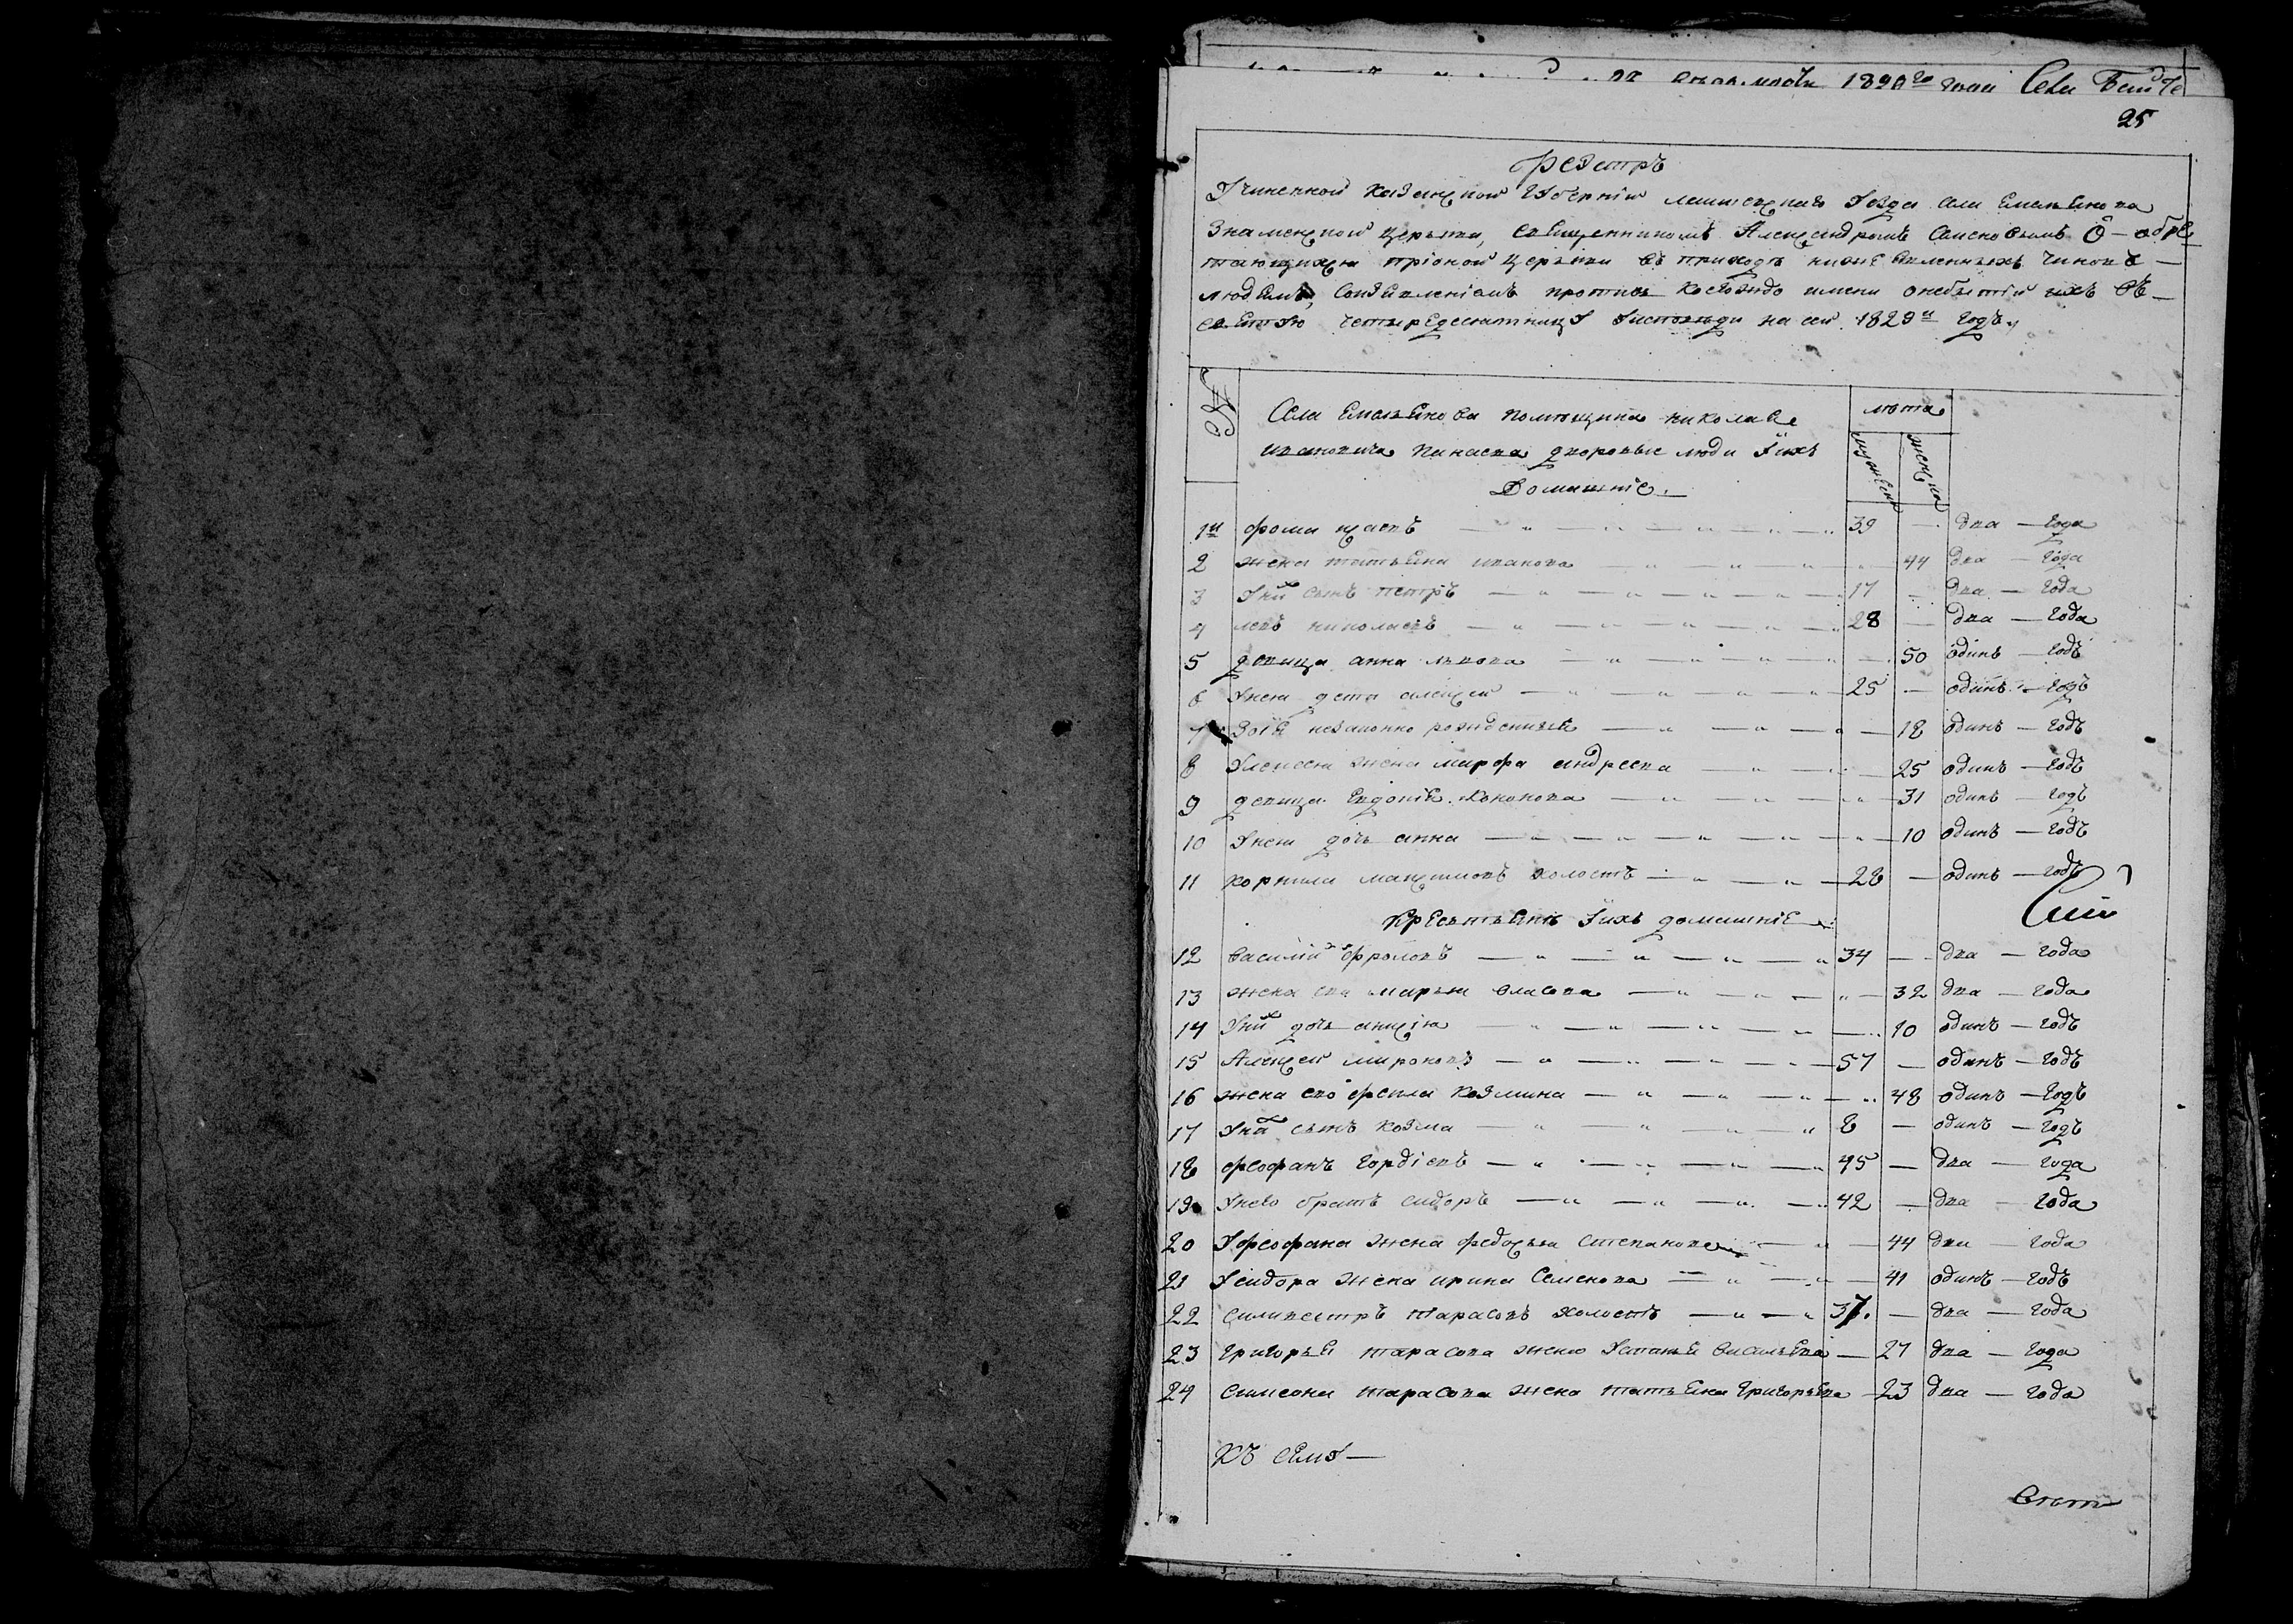 1829го года Села
25
Реэстръ
Учиненной Казанской Губернiи Лаишевскаго уезда села Емельянова
Знаменской церькви, священникомъ Александромъ Семеновымъ О обре
тающихся при оной церькви въ приходе ниже явленныхъ чиновъ
людямъ, со изъявленiемъ противъ коегождо имени о небытiи ихъ въ
святую четыредесятницу у исповеди на сей 1829й годъ.
№
Села Емельянова помещика николая
ивановича дворовые люди у ихъ
Домашнiе.
лета
мужеска
женска
1й фома 39 два года
2 жена татьяна иванова 44 два года
3 У ни^х сынъ петръ 17 два года
4 левъ николаевъ 28 два года
5 девица анна львова 50 одинъ годъ
6 У нея дети алексей 25 одинъ годъ
7 Зоiя незаконно рожденныя 18 одинъ годъ
8 У алексея жена марфа андреева 25 одинъ годъ
9 девица Евдокiя Кононова 31 одинъ годъ
10 У нея дочь анна 10 одинъ годъ
11 Корнила максимовъ холостъ 28 одинъ годъ
Крестьяне у ихъ домашнiе
12 Василiй Фроловъ 34 два года
13 жена ево марья власова 32 два года
14 У ни^х дочь 10 одинъ годъ
15 Алексей мироновъ 57 одинъ годъ
16 жена ево фекла Козмина 48 одинъ годъ
17 У ни^х сынъ Козма 8 одинъ годъ
18 феофанъ Гордiевъ 45 два года
19 У нево братъ сидоръ 42 два года
20 У феофана жена федосья степанова 44 два года
21 У сидора жена ирина Семенова 41 одинъ годъ
22 Силивестръ тарасовъ холостъ 37 два года
23 Григорья тарасова жена Устинья Васильева 27 два года
24 Симеона тарасова жена татьяна Григорьева 23 два года
Къ сему